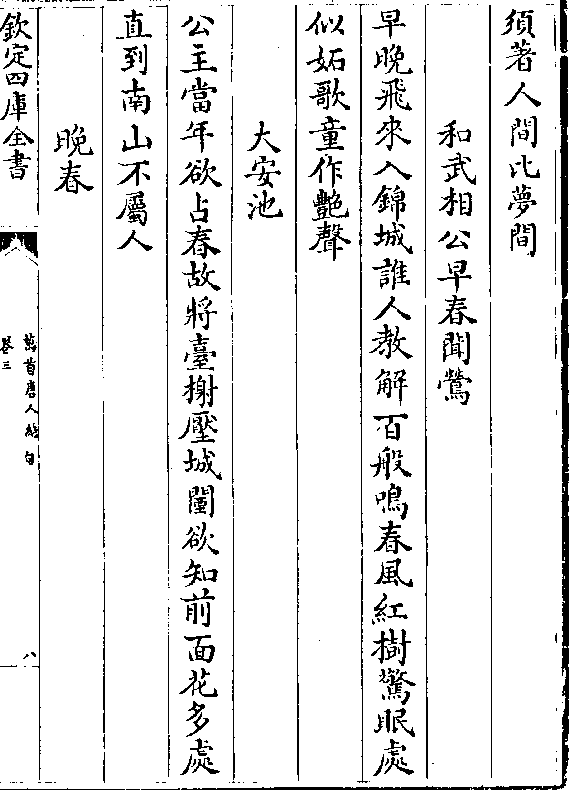 須著人間比夢間
和武相公早春聞鶯
早晚飛來入錦城誰人教解百般鳴春風紅樹驚眠處
似妬歌童作艷聲
大安池
公主當年欲占春故將臺榭壓城闉欲知前面花多處
直到南山不屬人
晚春
欽定四庫全書
萬首唐人絶句
卷三
八